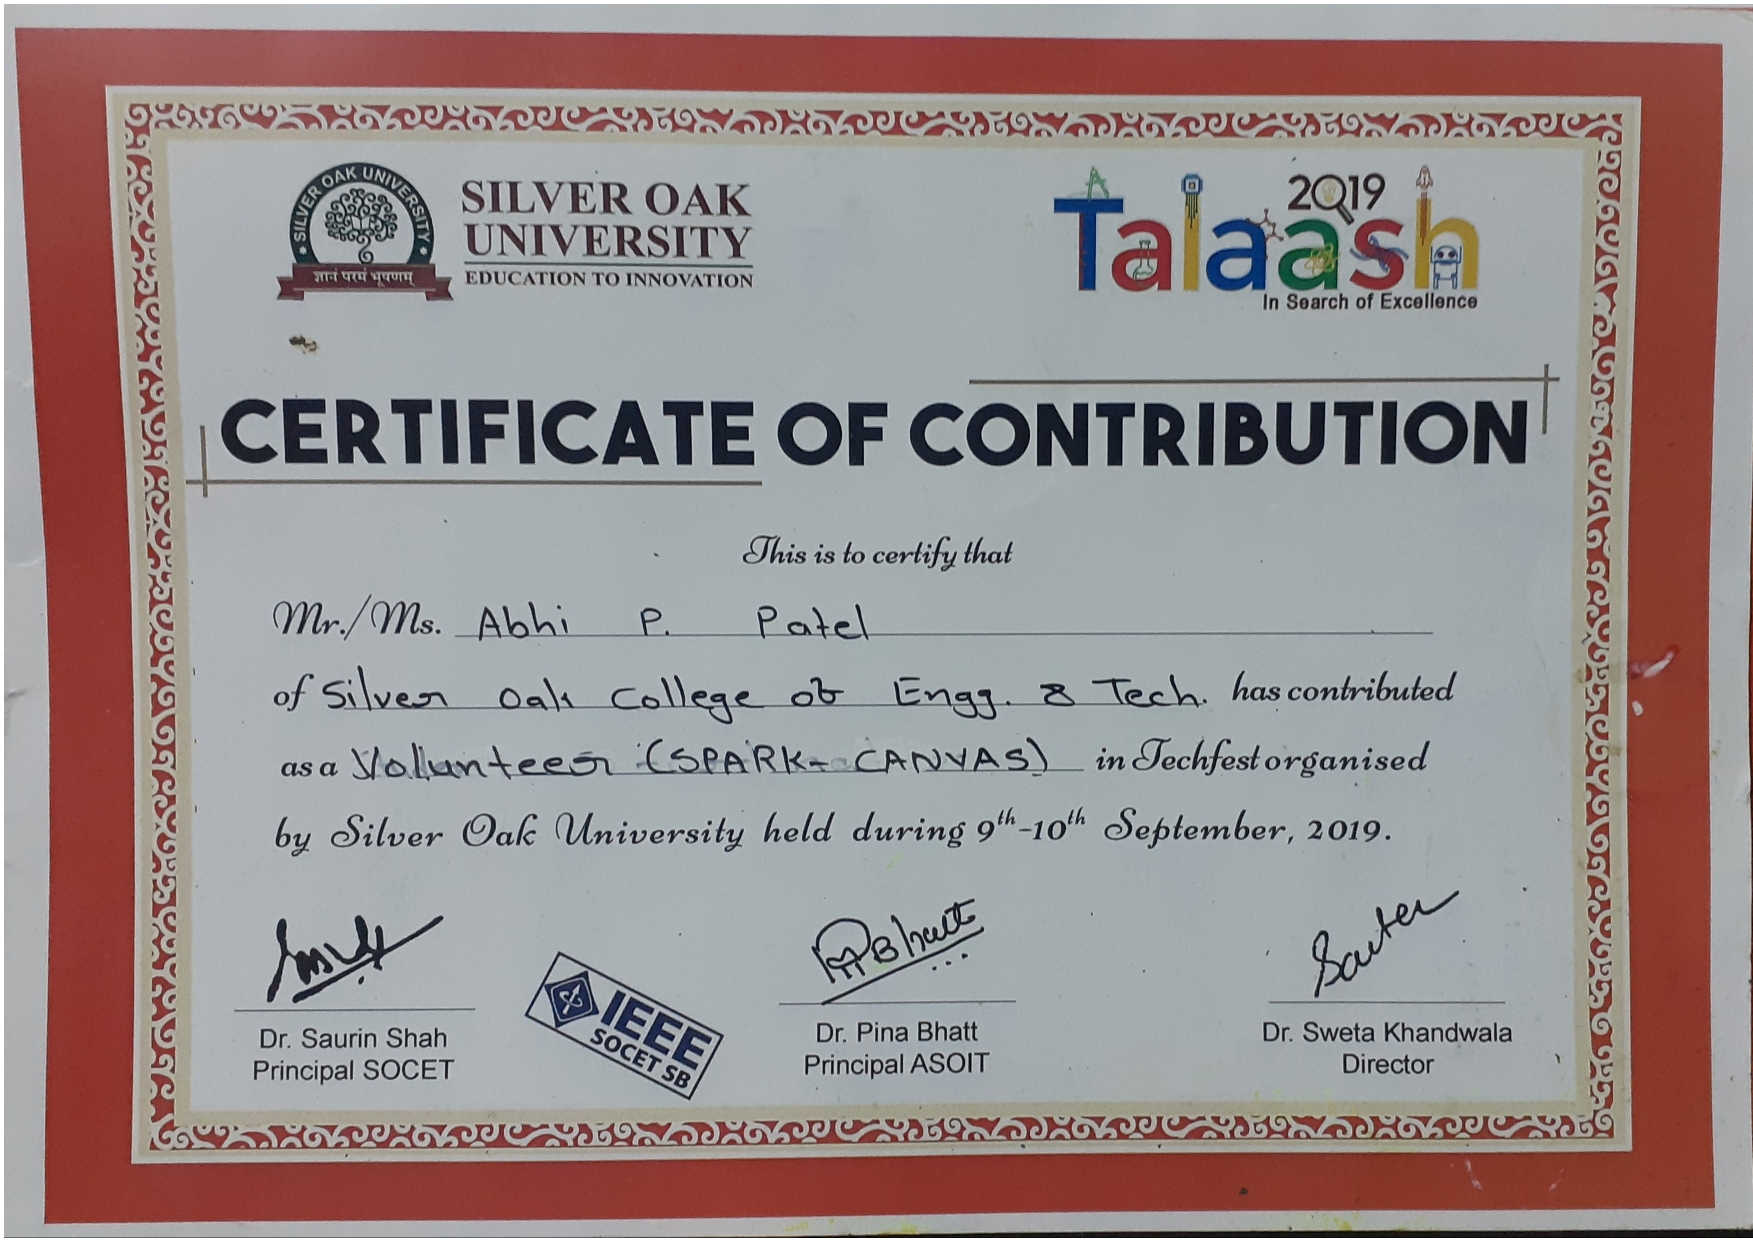 SILVER OAK UNIVERSITY
ज्ञानं परमं भूषणम्
SILVER OAK
UNIVERSITY
EDUCATION TO INNOVATION
2019
Talaash
In Search of Excellence
CERTIFICATE OF CONTRIBUTION
This is to certify that
Mr./Ms. Abhi P. Patel
of Silver Oak College of Engg. & Tech. has contributed
as a Volunteer (SPARK-CANVAS) in Techfest organised
by Silver Oak University held during 9th-10th September, 2019.
Bhatt
Dr. Saurin Shah
Principal SOCET
IEEE
SOCET SB
Dr. Pina Bhatt
Principal ASOIT
Dr. Sweta Khandwala
Director